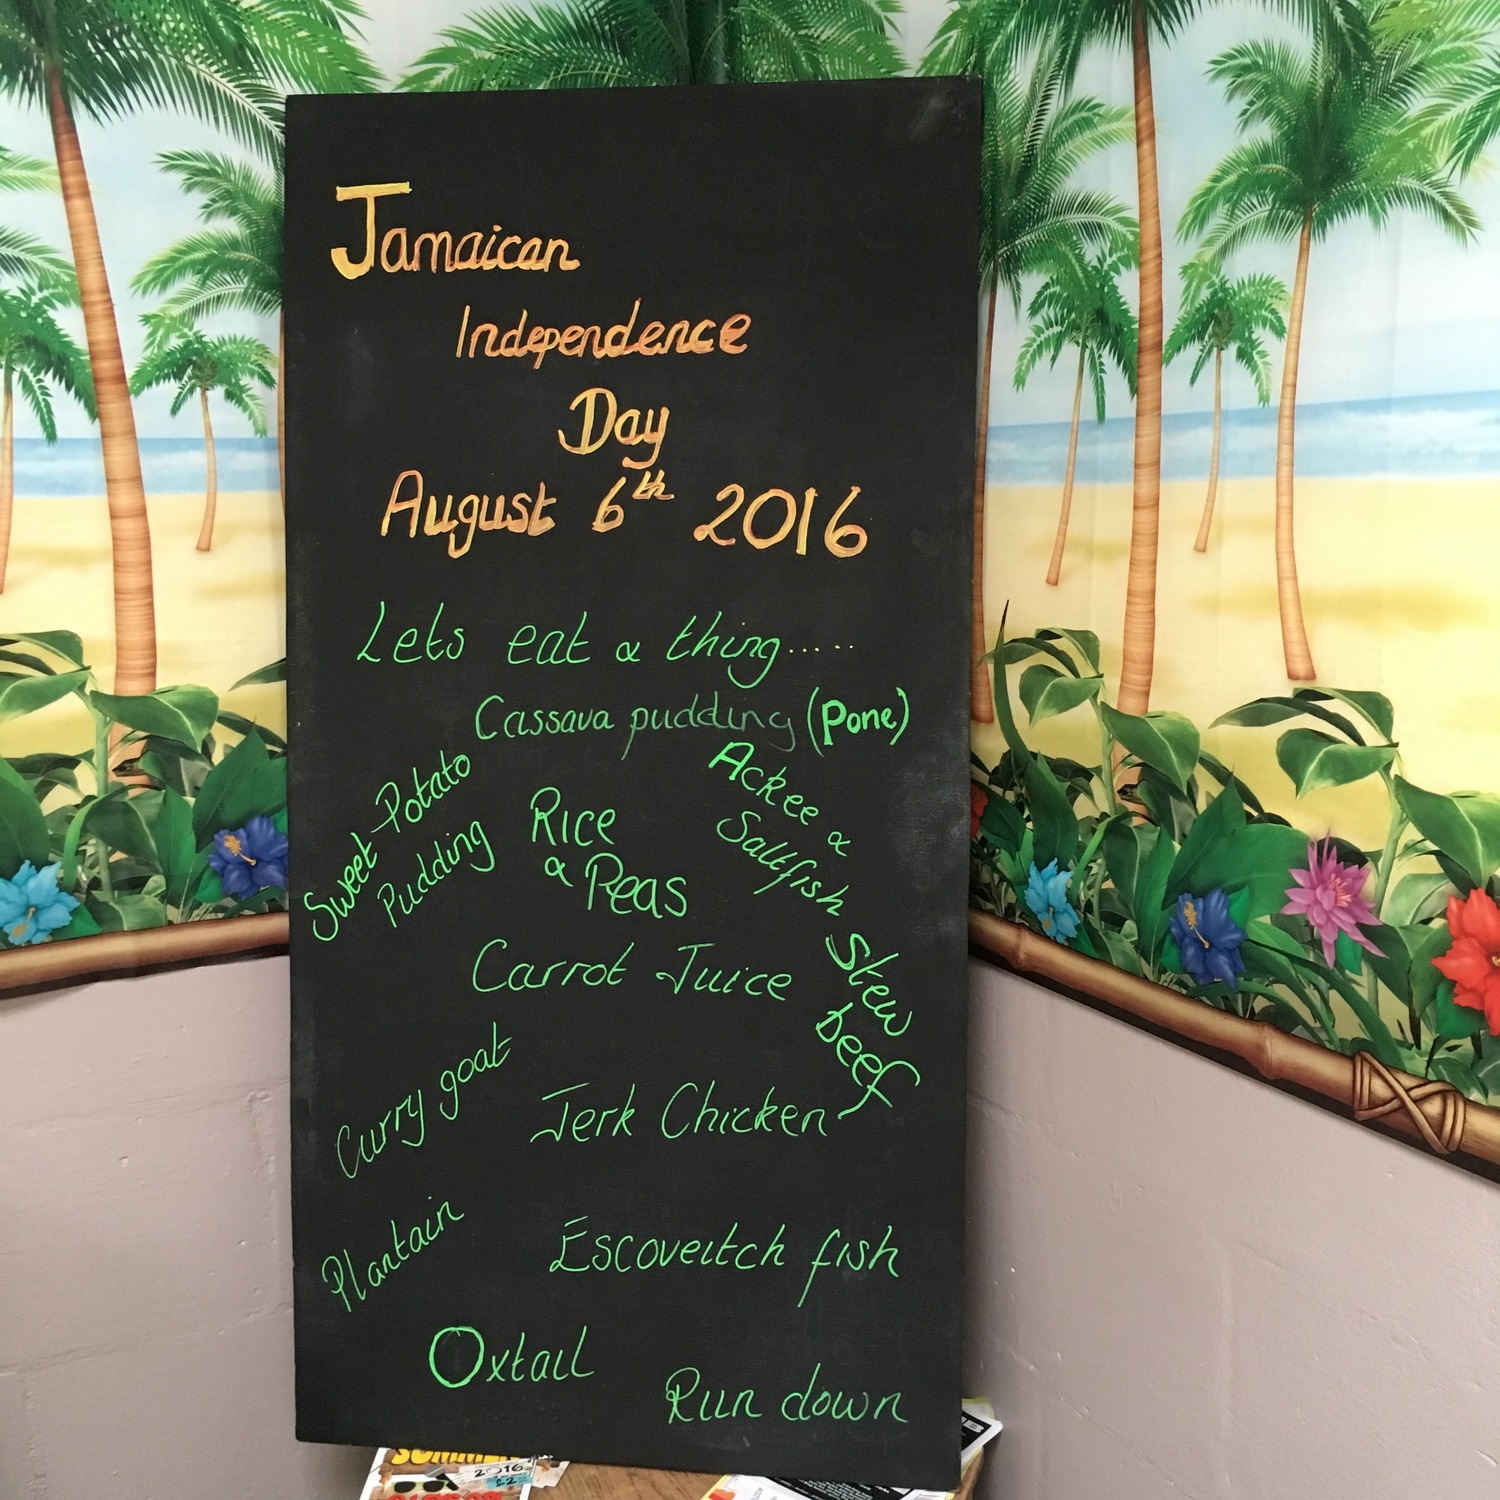 Jamaican
Independence
Day
August 6th 2016
Lets eat a thing.....
Cassava pudding (Pone)
Sweet Potato
Pudding
Rice
& Peas
Ackee &
Saltfish
Carrot Juice
Stew
beef
Curry goat
Jerk Chicken
Plantain
Escoveitch fish
Oxtail
Run down
2016
£2